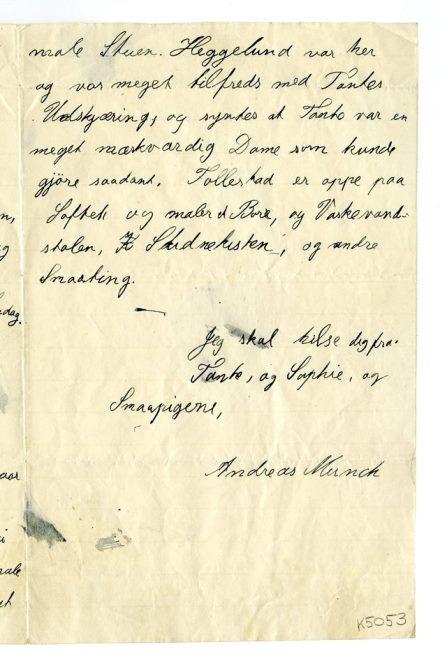 male Stuen. Heggelund var her
og var meget tilfreds med Tantes
Udskjæring, og syntes at Tante var en
meget mærkværdig Dame som kunde
gjöre saadant. Tollestad er oppe paa
Loftet og maler et Bord, og Vaskevand-
stolen, og andre
Smaating.
Jeg skal hilse dig fra
Tante, og Sophie, og
Smaapigene,
Andreas Munch
K5053
dag.